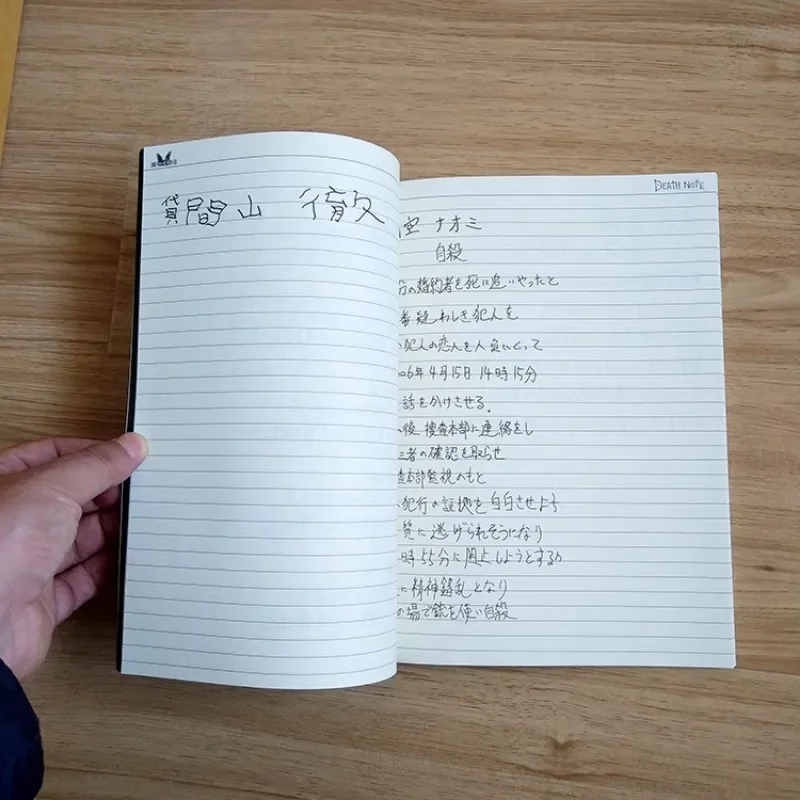 貸間山 徹
DEATH NOTE
空 ナオミ
自殺
分の婚約者を死に追いやったと
番疑わしき犯人を
犯人の恋人を人質にとって
006年4月15日 14時15分
話をかけさせる。
後 捜査本部に連絡をし
三者の確認を取らせ
査本部監視のもと
犯行の証拠を自白させよう
質に逃げられそうになり
時55分に阻止しようとするが
に精神錯乱となり
の場で銃を使い自殺